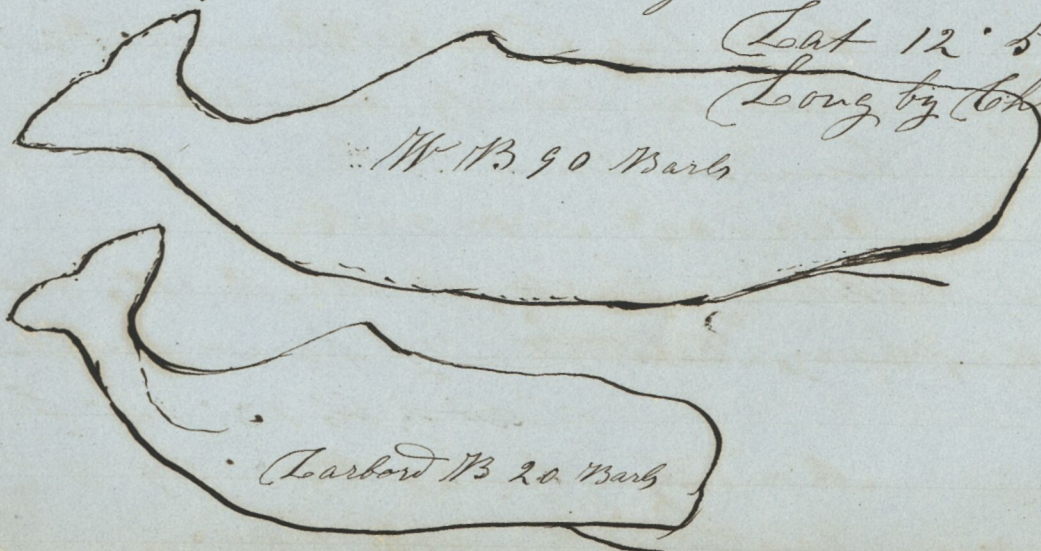 Lat 12°
Long by Ch
W. B. 90 Barls
Larbord B 20 Barls